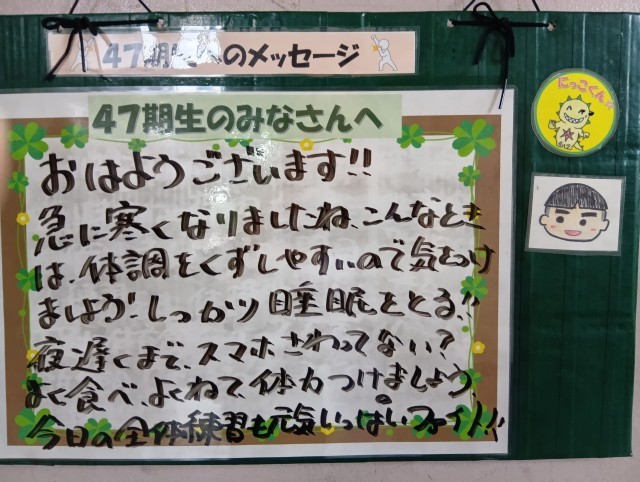 47期生へのメッセージ
47期生のみなさんへ
おはようございます!!
急に寒くなりましたね、こんなとき
は、体調をくずしやすいので気をつけ
ましょう!しっかり睡眠をとる!!
夜遅くまで、スマホさわってない?
よく食べ、よくねて、体力つけましょう。
今日の全体練習も元気いっぱいファイト!!
にっこくん